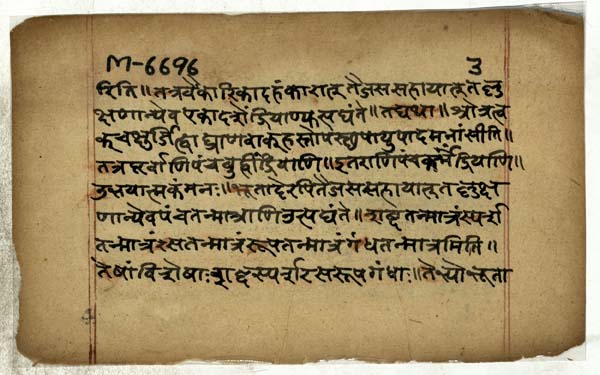 M-6696 ३
रिति॥तत्रवैकारिकादहंकारात्पूतैजससहायात्पूतेद्दलु
क्षणान्येवएकादशेंद्रियाण्युत्पद्यंते॥तद्यथा॥श्रोत्रत्व
क्चक्षुर्जिह्वाघ्राणवाक्हस्तोपस्छपायुपादमनांसीति॥
तत्रपूर्वाणिपंचबुद्धींद्रियाणि॥इतराणिपंचकर्मेंद्रियाणि॥
उभयात्मकंमनः॥भूतादेरपितैजससहायात्तद्लक्ष
णान्येवपंचतन्मात्राणिउत्पद्यंते॥शब्दतन्मात्रंस्पर्श
तन्मात्रंरसतन्मात्रंरूपतन्मात्रंगंधतन्मात्रमिति॥
तेषांविशेषाःशब्दस्पर्शरसरूपगंधाः॥तेभ्योभूता